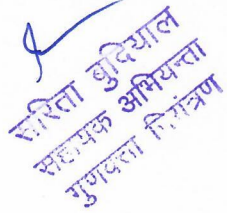 सरिता बुदियाल
सहायक अभियन्ता
गुणवत्ता नियंत्रण